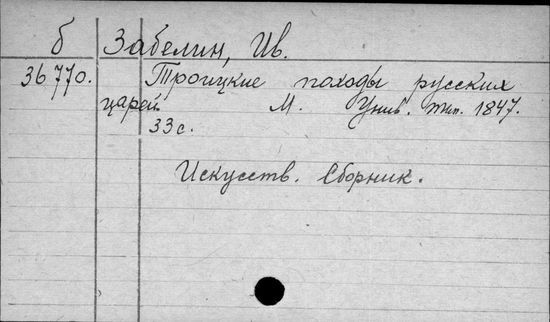 б Забелин, Ив.
36770. Троицкие походы русских
царей М. Унив. тип. 1847.
33 с.
Искусств. Сборник.